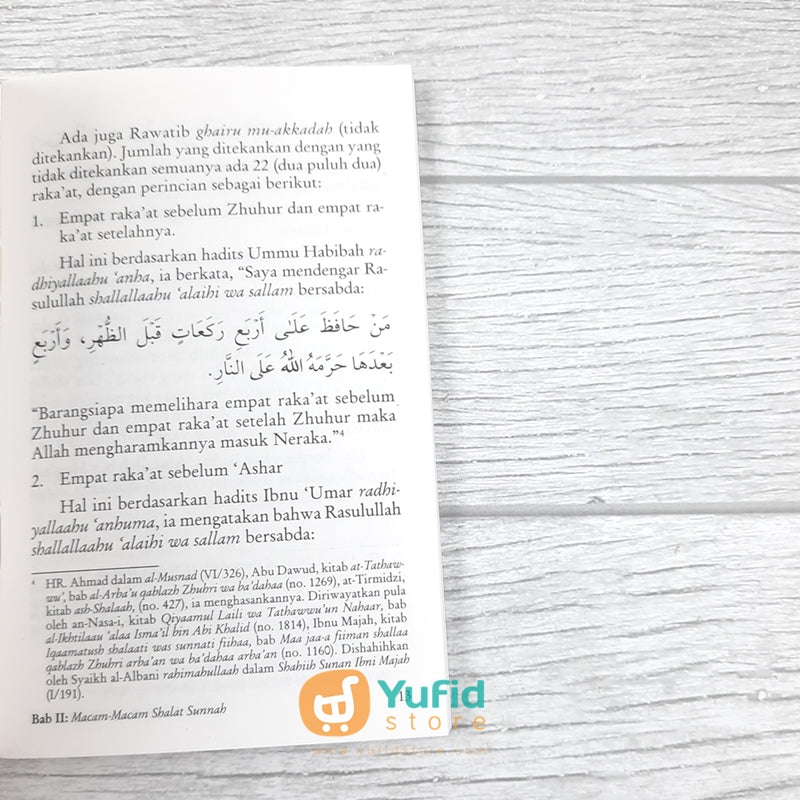 Ada juga Rawatib ghairu mu-akkadah (tidak
ditekankan). Jumlah yang ditekankan dengan yang
tidak ditekankan semuanya ada 22 (dua puluh dua)
raka'at, dengan perincian sebagai berikut:
1. Empat raka'at sebelum Zhuhur dan empat ra-
ka'at setelahnya.
Hal ini berdasarkan hadits Ummu Habibah ra-
dhiyallaahu 'anha, ia berkata, "Saya mendengar Ra-
sulullah shallallaahu 'alaihi wa sallam bersabda:
مَنْ حَافَظَ عَلَى أَرْبَعِ رَكَعَاتٍ قَبْلَ الظُّهْرِ، وَأَرْبَعٍ
بَعْدَهَا حَرَّمَهُ اللهُ عَلَى النَّارِ.
"Barangsiapa memelihara empat raka'at sebelum
Zhuhur dan empat raka'at setelah Zhuhur maka
Allah mengharamkannya masuk Neraka."4
2. Empat raka'at sebelum 'Ashar
Hal ini berdasarkan hadits Ibnu 'Umar radhi-
yallaahu 'anhuma, ia mengatakan bahwa Rasulullah
shallallaahu 'alaihi wa sallam bersabda:
4 HR. Ahmad dalam al-Musnad (VI/326), Abu Dawud, kitab at-Tathaw-
wu', bab al-Arba'u qablazh Zhuhri wa ba'dahaa (no. 1269), at-Tirmidzi,
kitab ash-Shalaah, (no. 427), ia menghasankannya. Diriwayatkan pula
oleh an-Nasa-i, kitab Qiyaamul Laili wa Tathawwu'un Nahaar, bab
al-Ikhtilaau 'alaa Isma'il bin Abi Khalid (no. 1814), Ibnu Majah, kitab
Iqaamatush shalaati was sunnati fiihaa, bab Maa jaa-a fiiman shallaa
qablazh Zhuhri arba'an wa ba'dahaa arba'an (no. 1160). Dishahihkan
oleh Syaikh al-Albani rahimahullaah dalam Shahiih Sunan Ibni Majah
(I/191).
Bab II: Macam-Macam Shalat Sunnah
13
Yufid
store
www.yufidstore.com